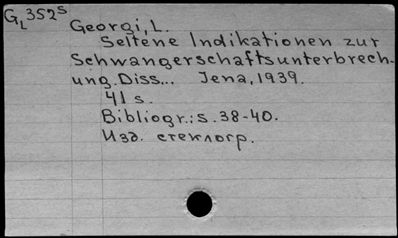 G_L 352^S
Georgi, L.
Seltene Indikationen zur
Schwangerschaftsunterbrech-
ung. Diss... Jena, 1939.
41 s.
Bibliogr.: s. 38-40.
Изд. стеклогр.